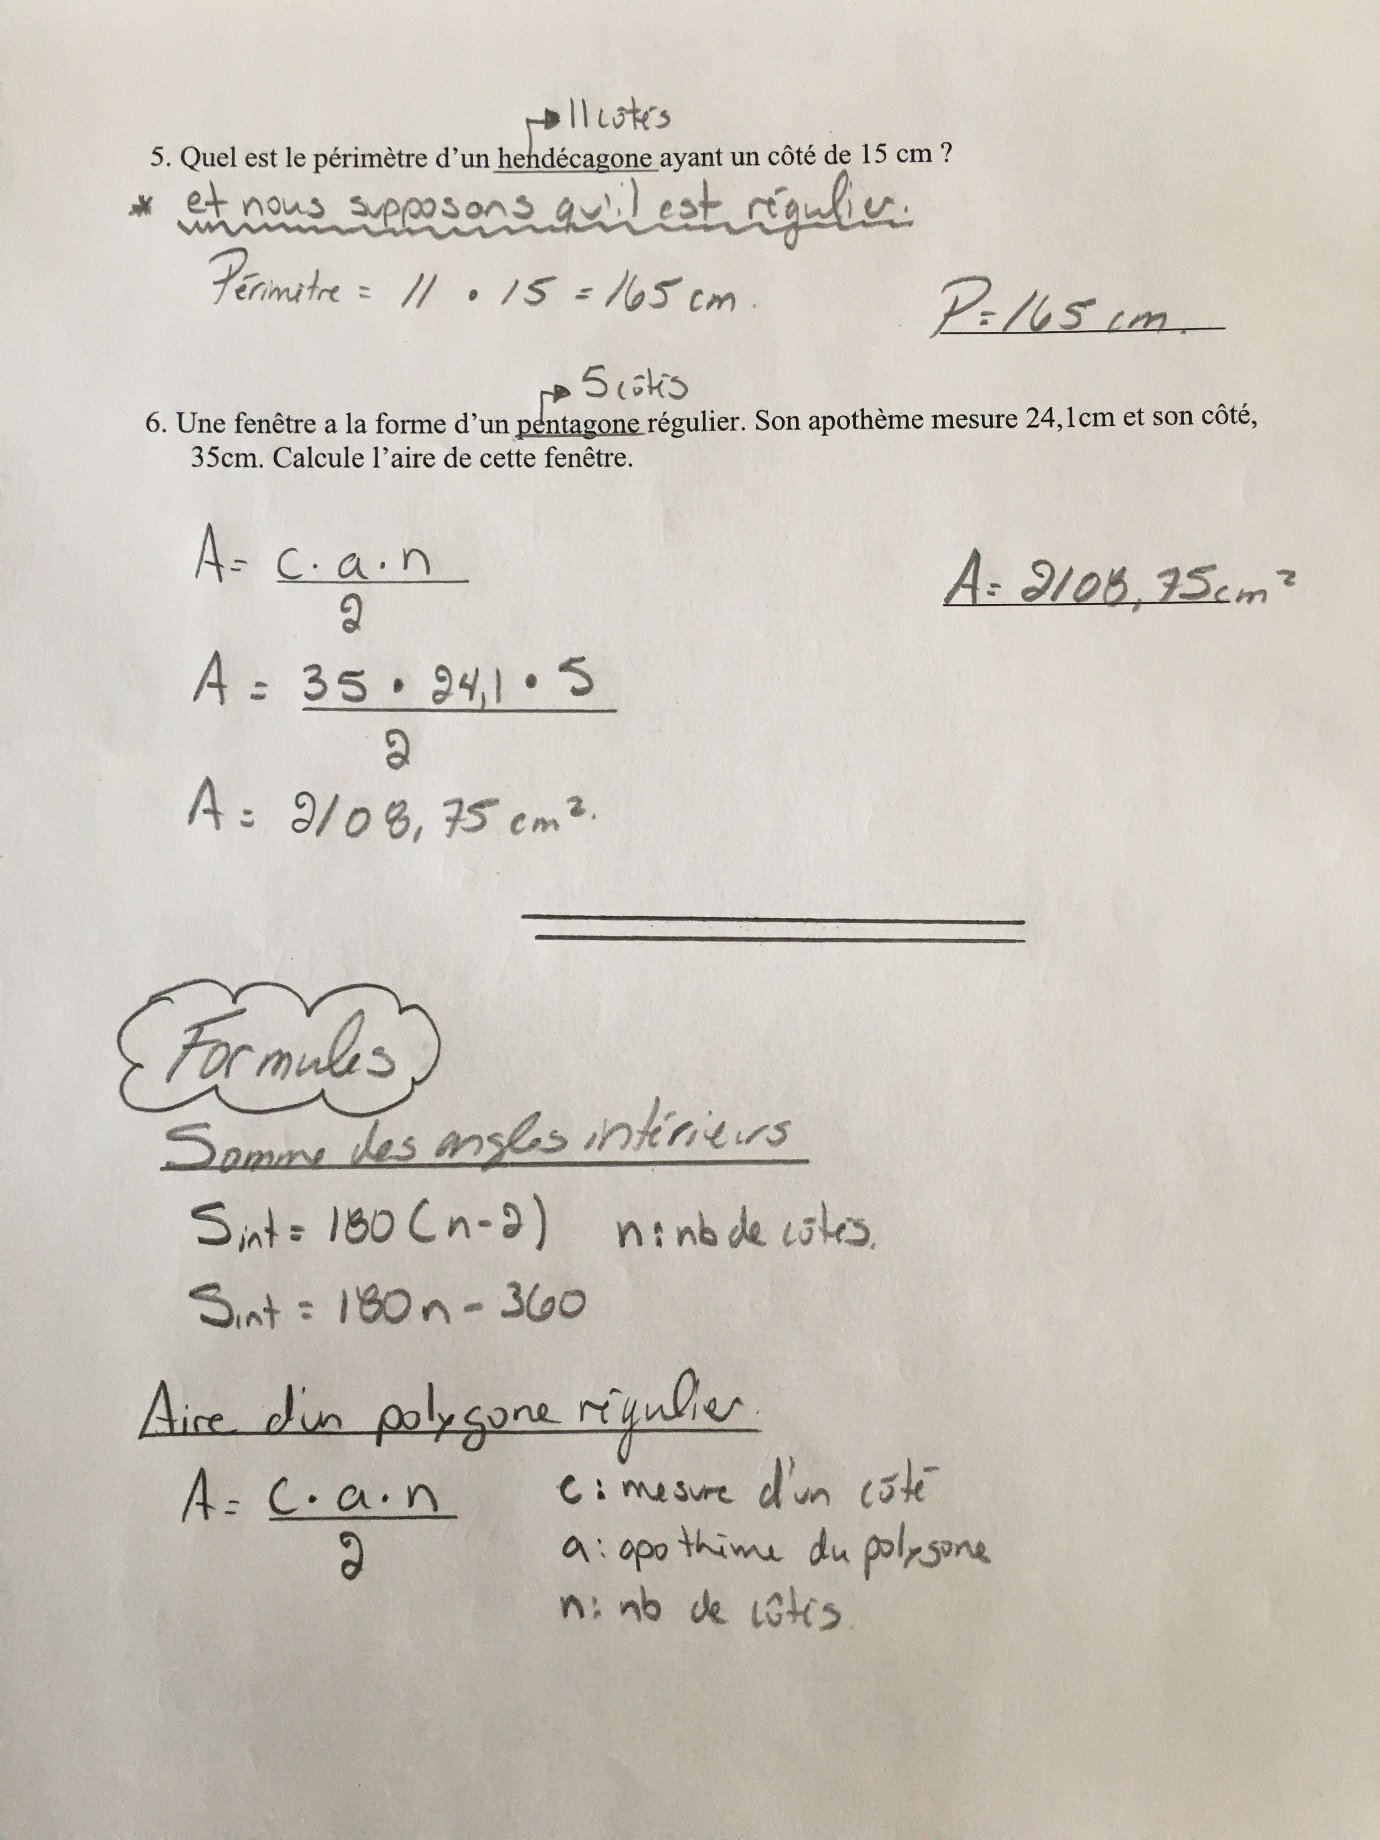 11 côtés
5. Quel est le périmètre d'un hendécagone ayant un côté de 15 cm ?
* et nous supposons qu'il est régulier.
Périmètre = 11 • 15 = 165 cm.
P = 165 cm.
5 côtés
6. Une fenêtre a la forme d'un pentagone régulier. Son apothème mesure 24,1cm et son côté,
35cm. Calcule l'aire de cette fenêtre.
A = c • a • n
2
A = 2108,75 cm²
A = 35 • 24,1 • 5
2
A = 2108,75 cm².
Formules
Somme des angles intérieurs
Sint = 180 (n - 2) n : nb de côtés.
Sint = 180n - 360
Aire d'un polygone régulier.
A = c • a • n
2
c : mesure d'un côté
a : apothème du polygone
n : nb de côtés.